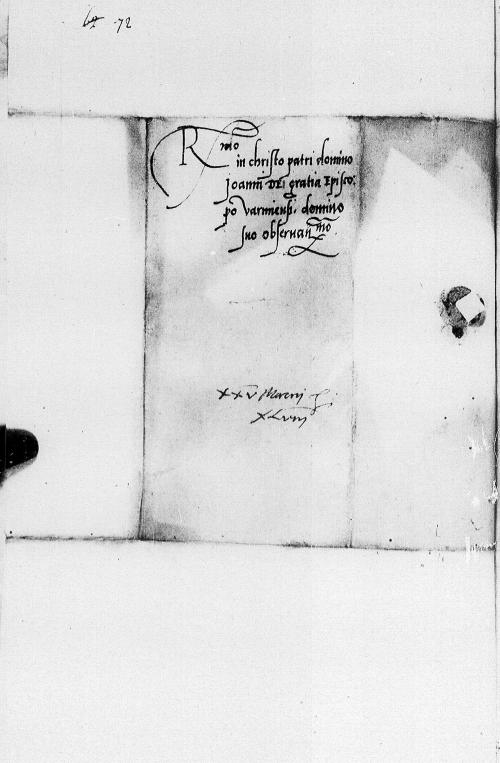 72
Rmo
in christo patri domino
Joanni DEI gratia Episco:
po Varmiensi. domino
suo observanmo
XXV Marcij
XLVIII